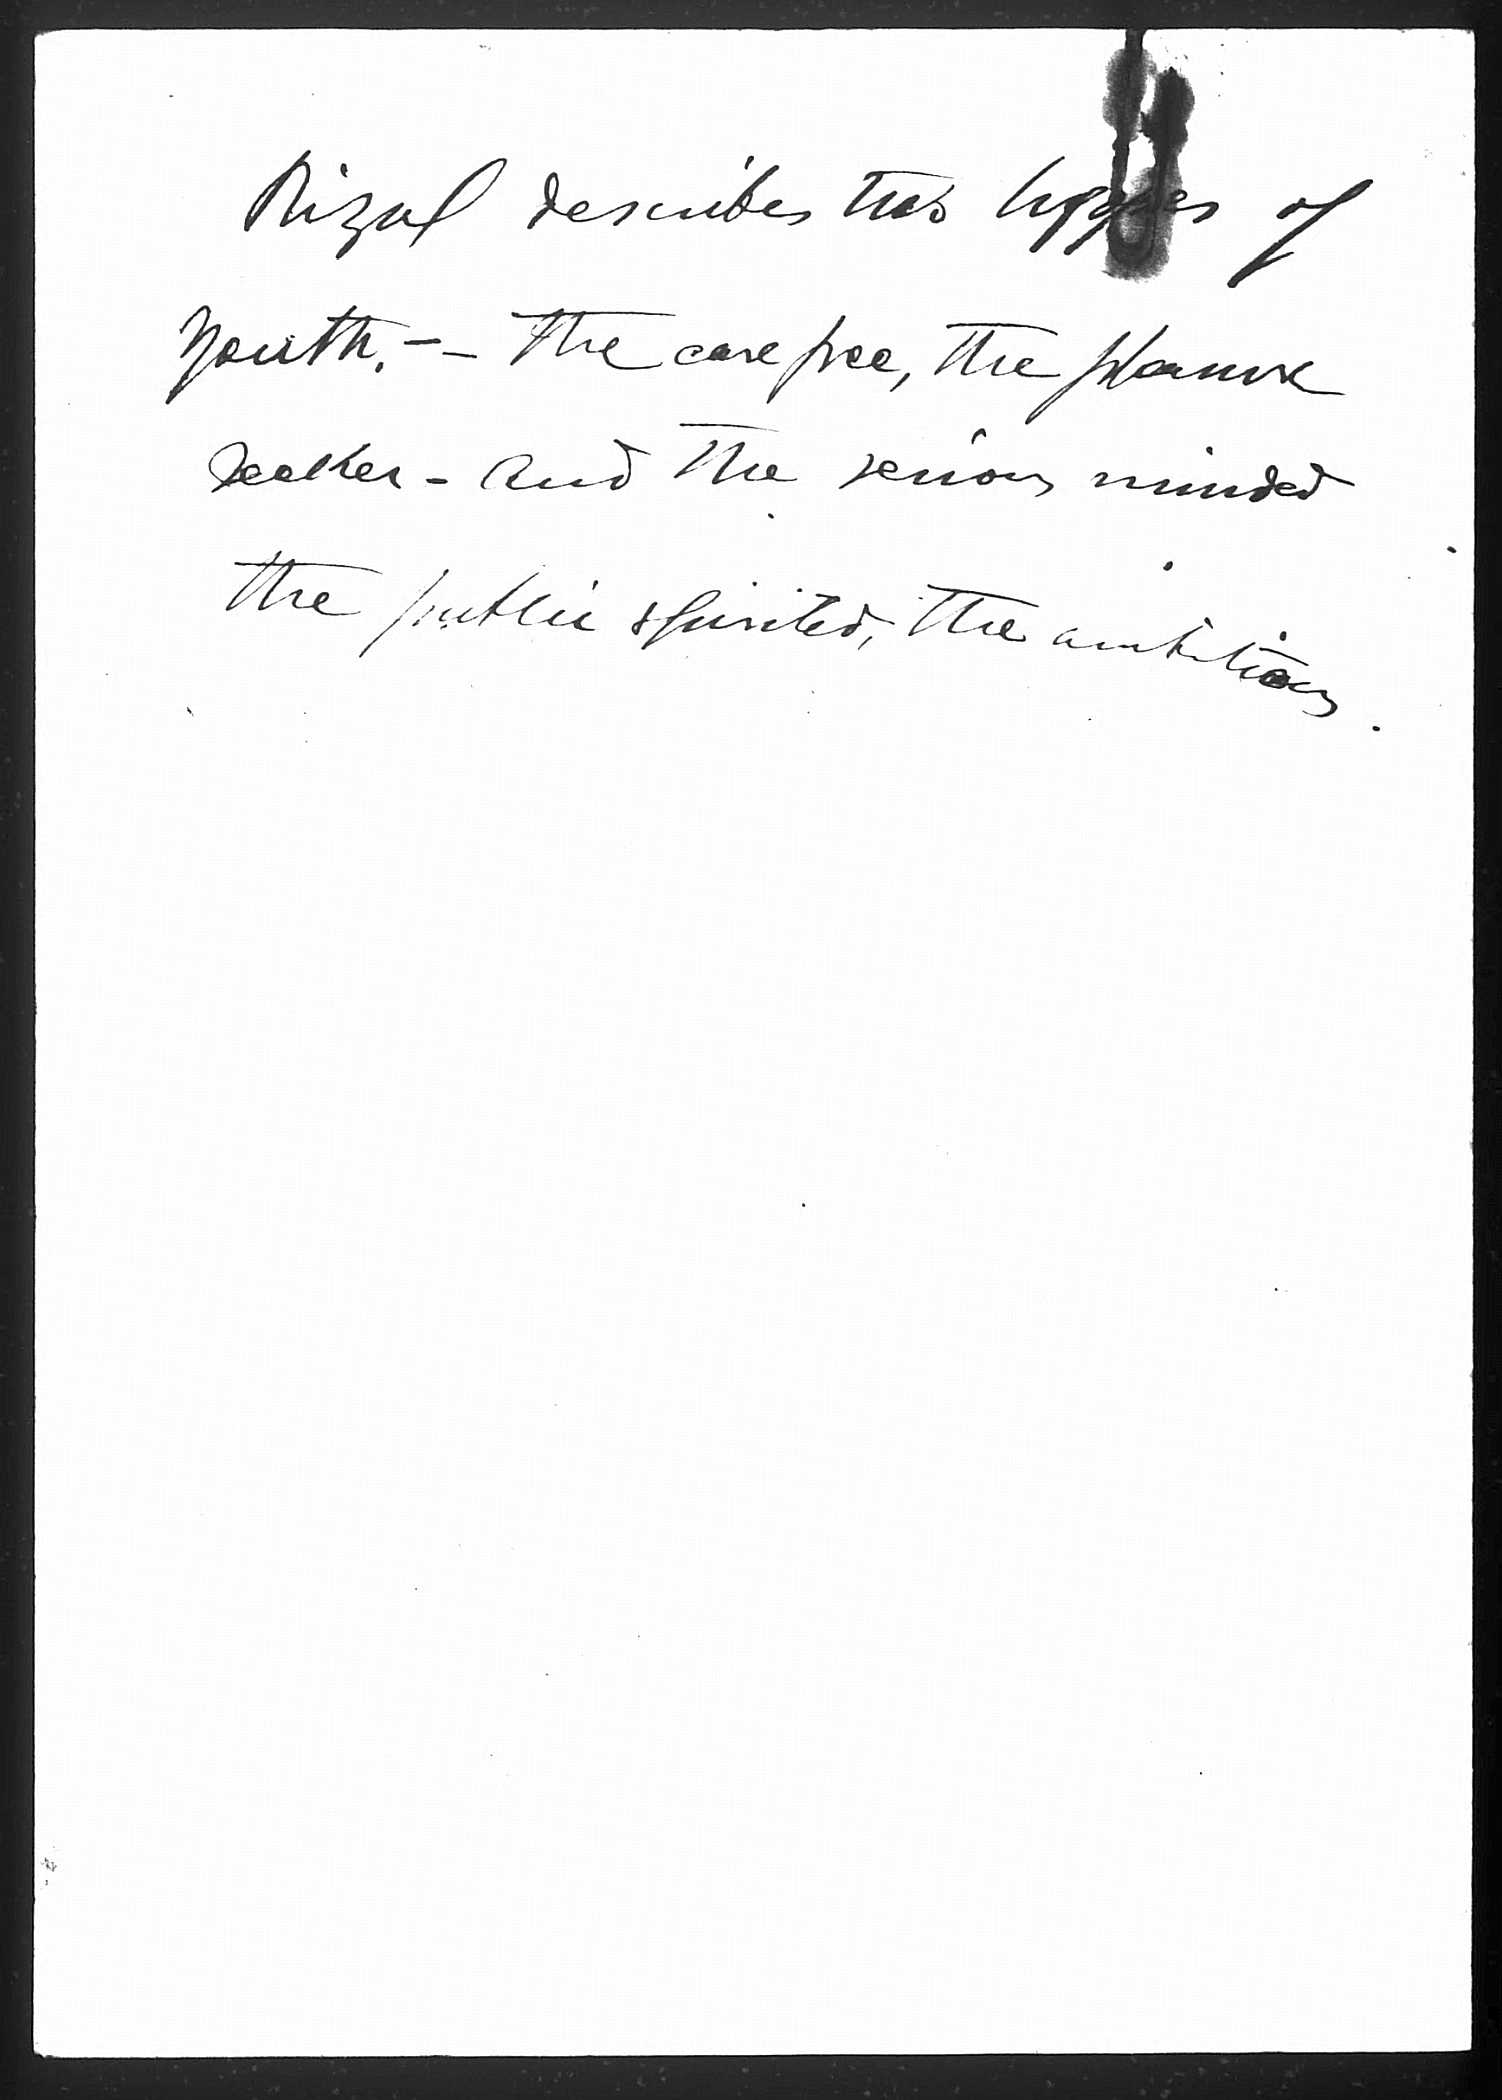 Rizal describes two types of
youth. -- The care free, the pleasure
seeker - and the serious minded
the public spirited, the ambitious.